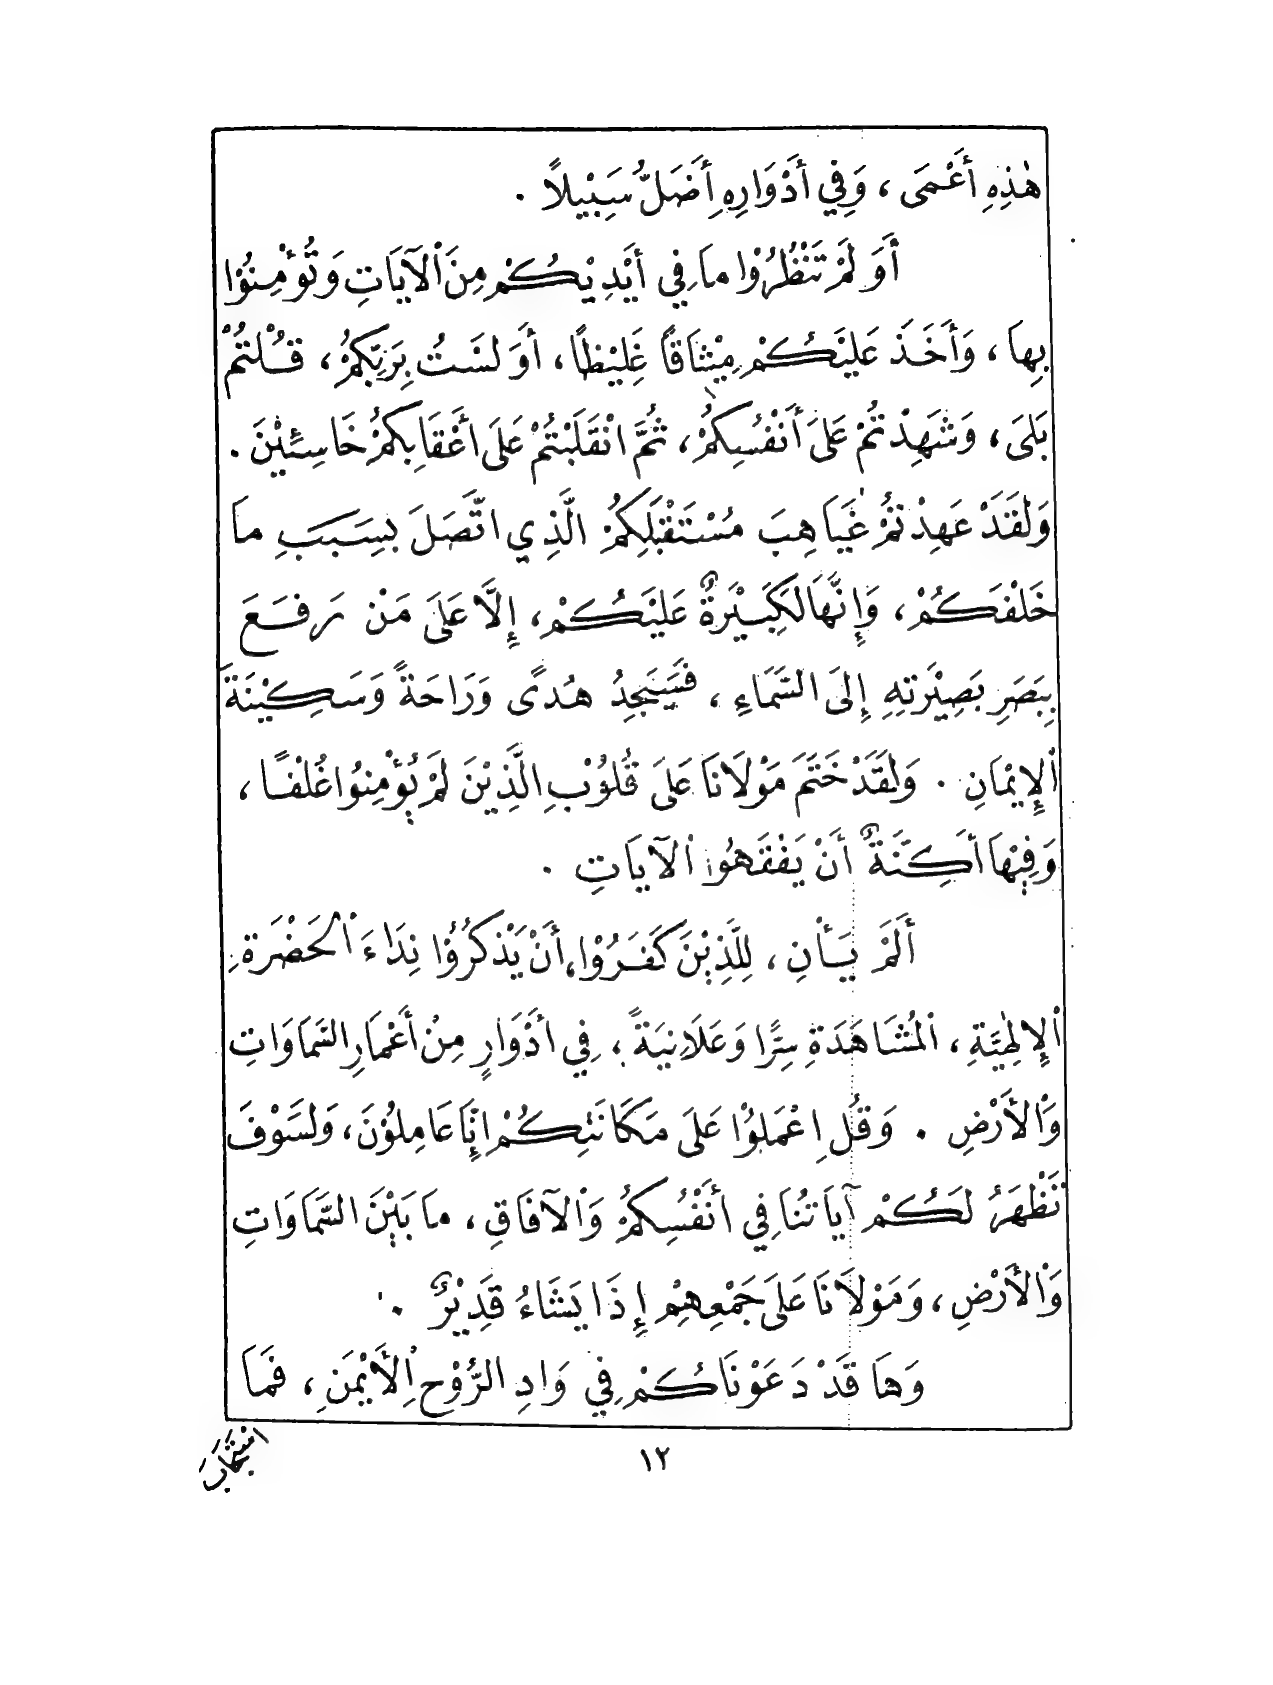 هٰذِهِ أَعْمَى ، وَفِي أَدْوَارِهِ أَضَلُّ سَبِيْلاً .
أَوَ لَمْ تَنْظُرُوْا مَا فِي أَيْدِيْكُمْ مِنَ ٱلْآيَاتِ وَتُؤْمِنُوْا
بِهَا ، وَأَخَذَ عَلَيْكُمْ مِيْثَاقًا غَلِيْظًا ، أَوَ لَسْتُ بِرَبِّكُمْ ، قُلْتُمْ
بَلَى ، وَشَهِدْتُمْ عَلَى أَنْفُسِكُمْ ، ثُمَّ انْقَلَبْتُمْ عَلَى أَعْقَابِكُمْ خَاسِئِيْنَ .
وَلَقَدْ عَهِدْتُمْ غَيَاهِبَ مُسْتَقْبَلِكُمْ الَّذِي اتَّصَلَ بِسَبَبِ مَا
خَلْفَكُمْ ، وَإِنَّهَا لَكَبِيْرَةٌ عَلَيْكُمْ ، إِلَّا عَلَى مَنْ رَفَعَ
بِبَصَرِ بَصِيْرَتِهِ إِلَى السَّمَاءِ ، فَسَيَجِدُ هُدًى وَرَاحَةً وَسَكِيْنَةَ
ٱلْإِيْمَانِ . وَلَقَدْ خَتَمَ مَوْلَانَا عَلَى قُلُوْبِ الَّذِيْنَ لَمْ يُؤْمِنُوا غُلْفًا ،
وَفِيْهَا أَكِنَّةٌ أَنْ يَفْقَهُوا ٱلْآيَاتِ .
أَلَمْ يَأْنِ ، لِلَّذِيْنَ كَفَرُوْا ، أَنْ يَذْكُرُوْا نِدَاءَ ٱلْحَضْرَةِ
ٱلْإِلٰهِيَّةِ ، ٱلْمُشَاهَدَةِ سِرًّا وَعَلَانِيَةً ، فِي أَدْوَارٍ مِنْ أَعْمَارِ السَّمَاوَاتِ
وَٱلْأَرْضِ . وَقُلِ اعْمَلُوْا عَلَى مَكَانَتِكُمْ إِنَّا عَامِلُوْنَ ، وَلَسَوْفَ
تَظْهَرُ لَكُمْ آيَاتُنَا فِي أَنْفُسِكُمْ وَٱلْآفَاقِ ، مَا بَيْنَ السَّمَاوَاتِ
وَٱلْأَرْضِ ، وَمَوْلَانَا عَلَى جَمْعِهِمْ إِذَا يَشَاءُ قَدِيْرٌ .
وَهَا قَدْ دَعَوْنَاكُمْ فِي وَادِ الرُّوْحِ ٱلْأَيْمَنِ ، فَمَا
١٢
اسْتَجَابَ